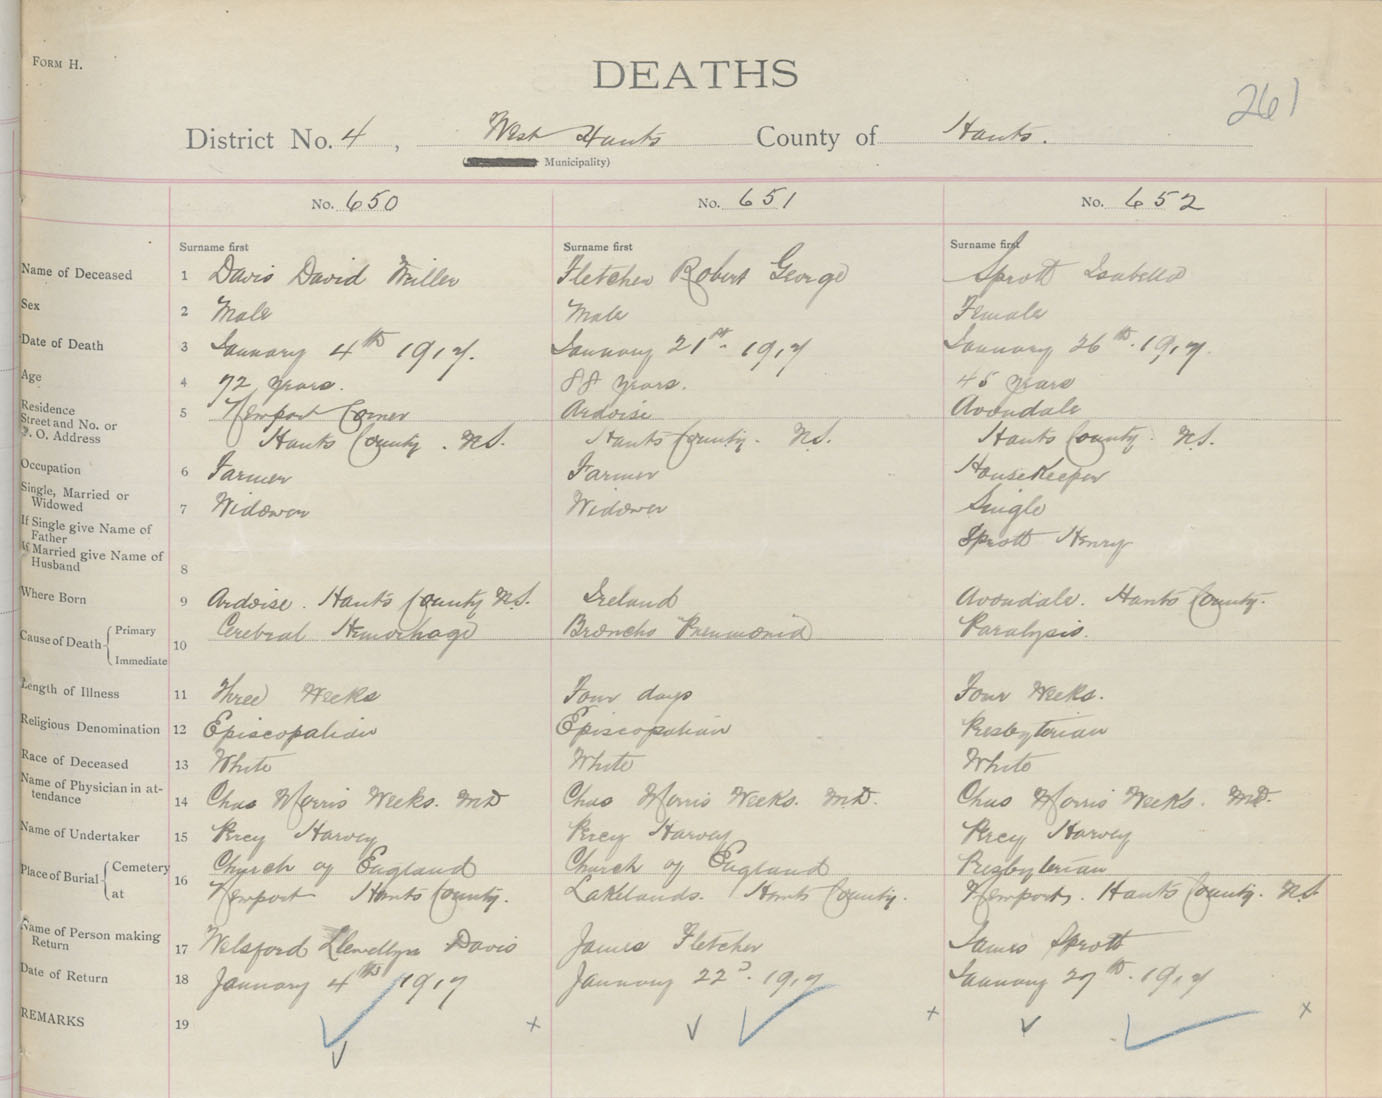 FORM H.
DEATHS
261
District No. 4, West Hants County of Hants.
Municipality)
No. 650 No. 651 No. 652
Surname first Surname first Surname first
Name of Deceased 1 Davis David Miller Fletcher Robert George Sprott Isabella
Sex 2 Male Male Female
Date of Death 3 January 4th 1917. January 21st. 1917 January 26th. 1917.
Age 4 72 years. 88 years. 45 years
Residence 5 Newport Corner Ardoise Avondale
Street and No. or
P. O. Address Hants County. N.S. Hants County. N.S. Hants County. N.S.
Occupation 6 Farmer Farmer HouseKeeper
Single, Married or
Widowed 7 Widower Widower Single
If Single give Name of
Father Sprott Henry
If Married give Name of
Husband 8
Where Born 9 Ardoise. Hants County N.S. Ireland Avondale. Hants County.
Cause of Death Primary 10 Cerebral Hemorhage Broncho Pneumonia Paralysis.
Immediate
Length of Illness 11 Three Weeks Four days Four Weeks.
Religious Denomination 12 Episcopalian Episcopalian Presbyterian
Race of Deceased 13 White White White
Name of Physician in at-
tendance 14 Chas Morris Weeks. M.D Chas Morris Weeks. M.D. Chas Morris Weeks. M.D.
Name of Undertaker 15 Percy Harvey Percy Harvey Percy Harvey
Place of Burial Cemetery 16 Church of England Church of England Presbyterian
at Newport Hants County. Lakelands. Hants County. Newport. Hants County. N.S.
Name of Person making
Return 17 Welsford Llewellyn Davis James Fletcher James Sprott
Date of Return 18 January 4th 1917 January 22d. 1917 January 27th. 1917
REMARKS 19 x x x